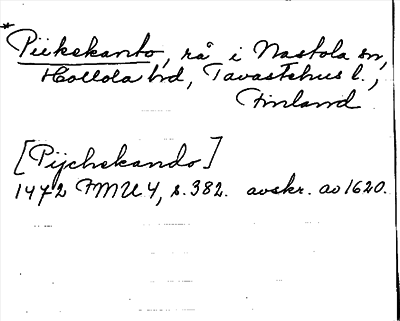 *Piikskanto, rå i Nastola sn,
Hollola hd, Tavastehus l.,
Finland
[Pijchskando]
1472 FMU 4, s. 382. avskr. av 1620.